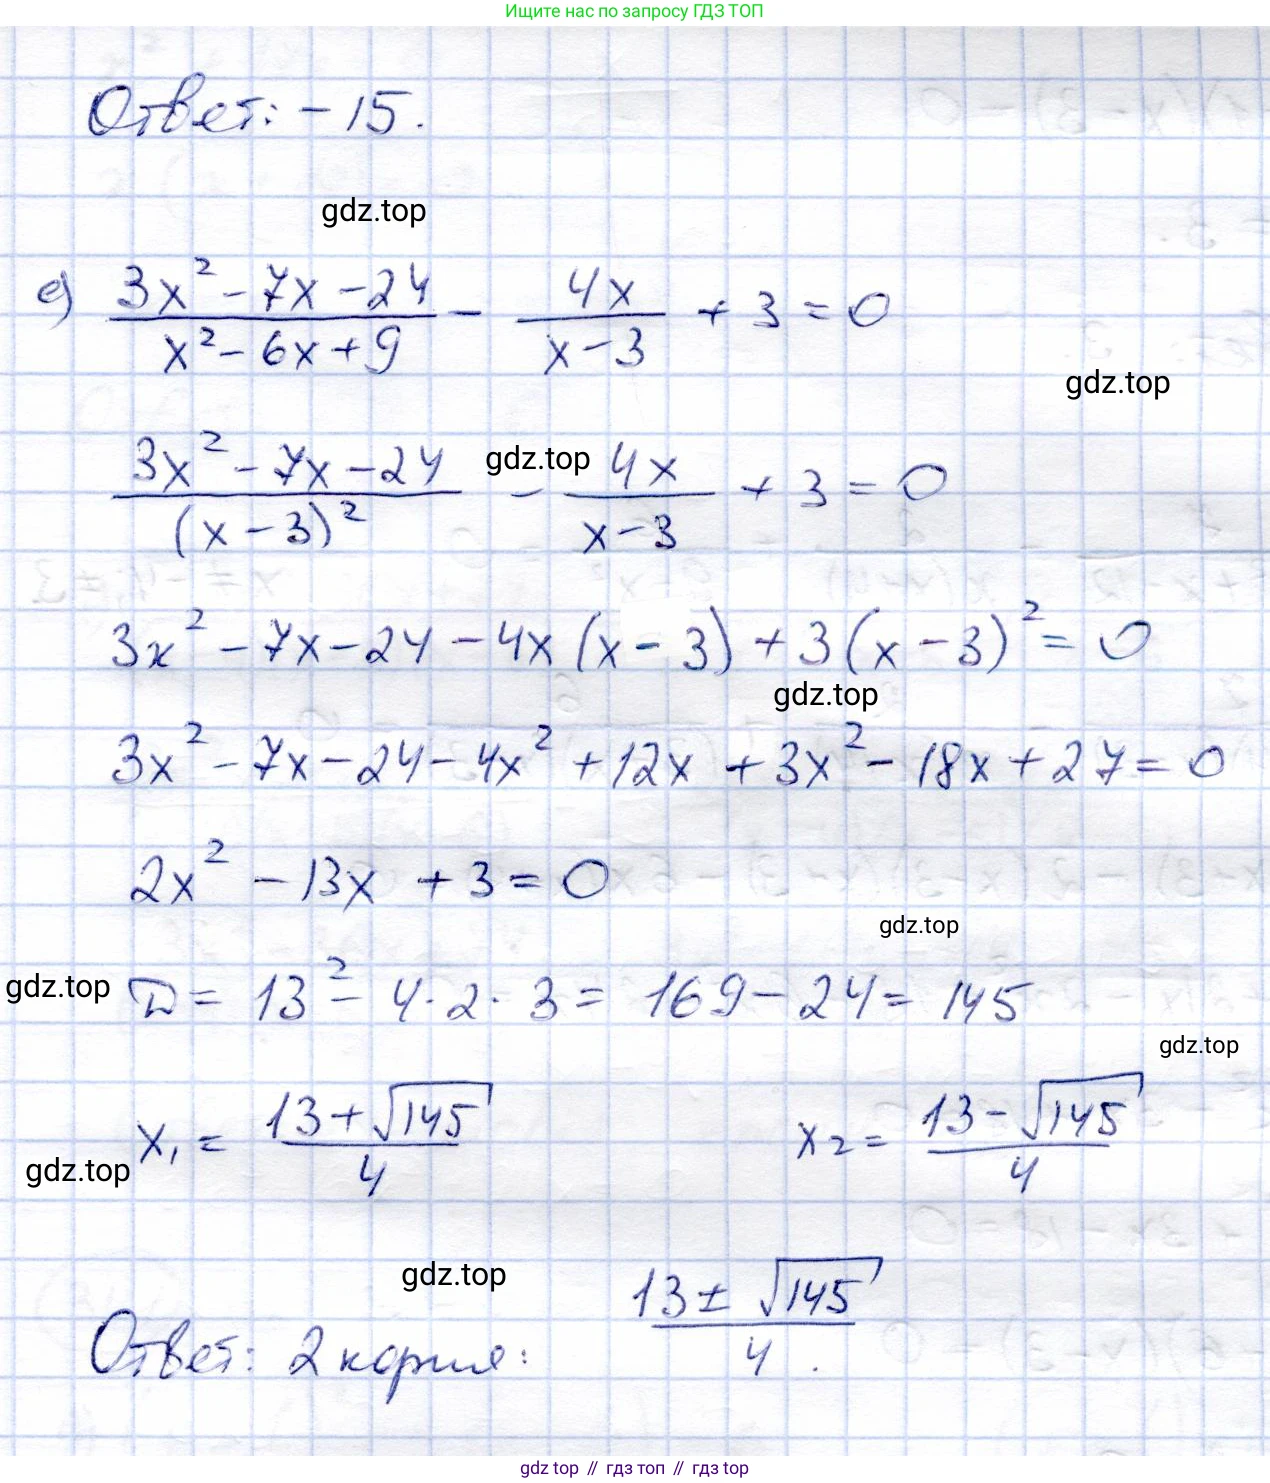 Ищите нас по запросу ГДЗ ТОП
Ответ: -15.
gdz.top
е) (3x² - 7x - 24)/(x² - 6x + 9) - 4x/(x - 3) + 3 = 0
gdz.top
(3x² - 7x - 24)/(x - 3)² - 4x/(x - 3) + 3 = 0
gdz.top
3x² - 7x - 24 - 4x(x - 3) + 3(x - 3)² = 0
gdz.top
3x² - 7x - 24 - 4x² + 12x + 3x² - 18x + 27 = 0
2x² - 13x + 3 = 0
gdz.top
gdz.top
D = 13² - 4·2·3 = 169 - 24 = 145
gdz.top
x₁ = (13 + √145)/4 x₂ = (13 - √145)/4
gdz.top
gdz.top
Ответ: 2 корня: (13 ± √145)/4.
gdz top // гдз топ // gdz top